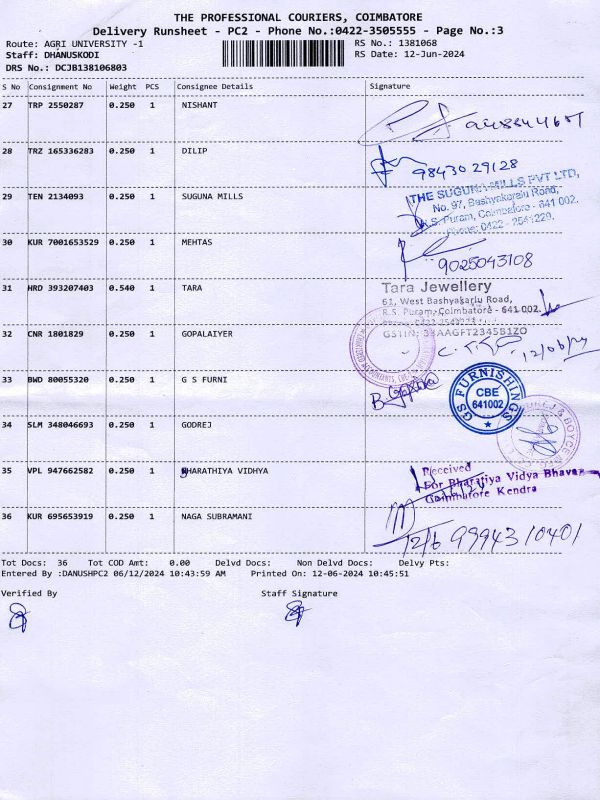 THE PROFESSIONAL COURIERS, COIMBATORE
Delivery Runsheet - PC2 - Phone No.:0422-3505555 - Page No.:3
Route: AGRI UNIVERSITY -1 RS No.: 1381068
Staff: DHANUSKODI RS Date: 12-Jun-2024
DRS No.: DCJB138106803
S No Consignment No Weight PCS Consignee Details Signature
27 TRP 2550287 0.250 1 NISHANT
28 TRZ 165336283 0.250 1 DILIP
9843029128
29 TEN 2134093 0.250 1 SUGUNA MILLS
THE SUGUNA MILLS PVT LTD,
No. 97, Bashyakaralu Road,
R.S. Puram, Coimbatore - 641 002.
Phone: 0422 - 2541229.
30 KUR 7001653529 0.250 1 MEHTAS
9025043108
31 HRD 393207403 0.540 1 TARA
Tara Jewellery
61, West Bashyakarlu Road,
R.S. Puram, Coimbatore - 641 002.
GSTIN: 33AAGFT2345B1ZO
32 CNR 1801829 0.250 1 GOPALAIYER
12/06/24
33 BWD 80055320 0.250 1 G S FURNI
GS FURNISHINGS
CBE
641002
34 SLM 348046693 0.250 1 GODREJ
GODREJ & BOYCE
35 VPL 947662582 0.250 1 BHARATHIYA VIDHYA
Received
For Bharatiya Vidya Bhavan
Coimbatore Kendra
36 KUR 695653919 0.250 1 NAGA SUBRAMANI
12/6 9994310401
Tot Docs: 36 Tot COD Amt: 0.00 Delvd Docs: Non Delvd Docs: Delvy Pts:
Entered By :DANUSHPC2 06/12/2024 10:43:59 AM Printed On: 12-06-2024 10:45:51
Verified By Staff Signature